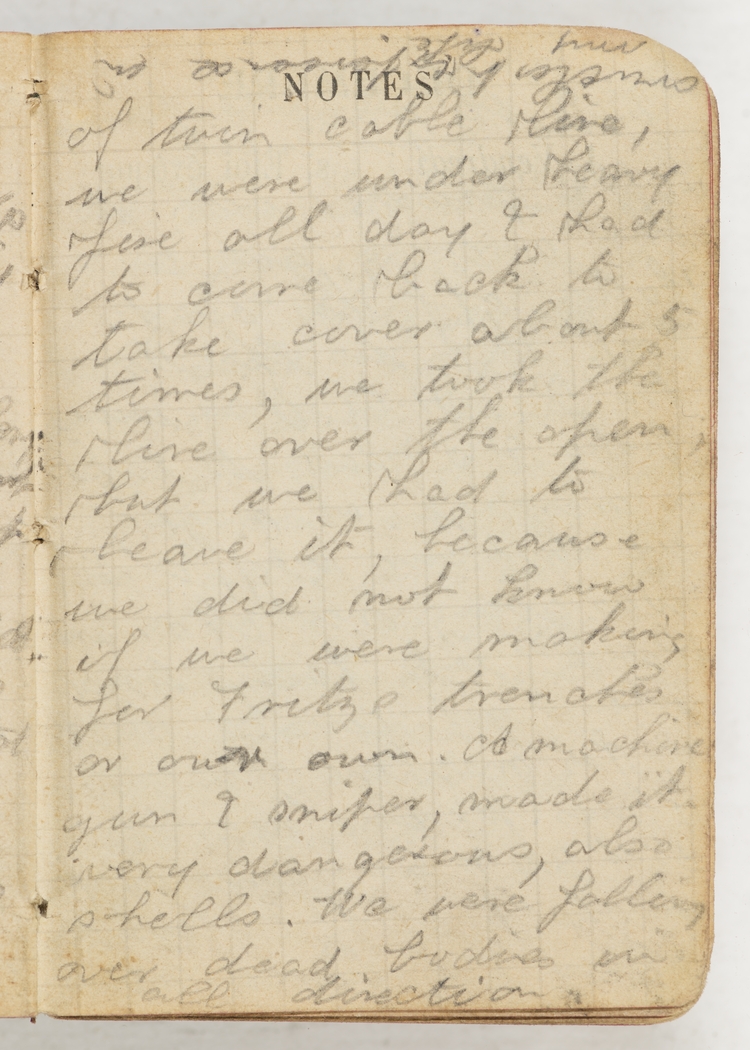 NOTES
of twin cable line,
we were under heavy
fire all day & had
to come back to
take cover about 5
times, we took the
line over the open,
but we had to
leave it, because
we did not know
if we were making
for Fritze trenches
or our own. A machine
gun & sniper, made it
very dangerous, also
shells. We were falling
over dead bodies in
all direction.